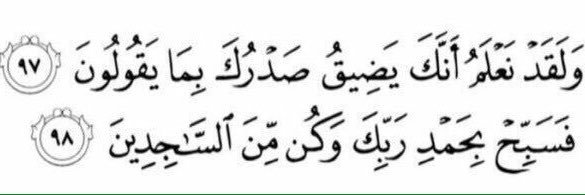 وَلَقَدۡ نَعۡلَمُ أَنَّكَ يَضِيقُ صَدۡرُكَ بِمَا يَقُولُونَ ٩٧
فَسَبِّحۡ بِحَمۡدِ رَبِّكَ وَكُن مِّنَ ٱلسَّـٰجِدِينَ ٩٨